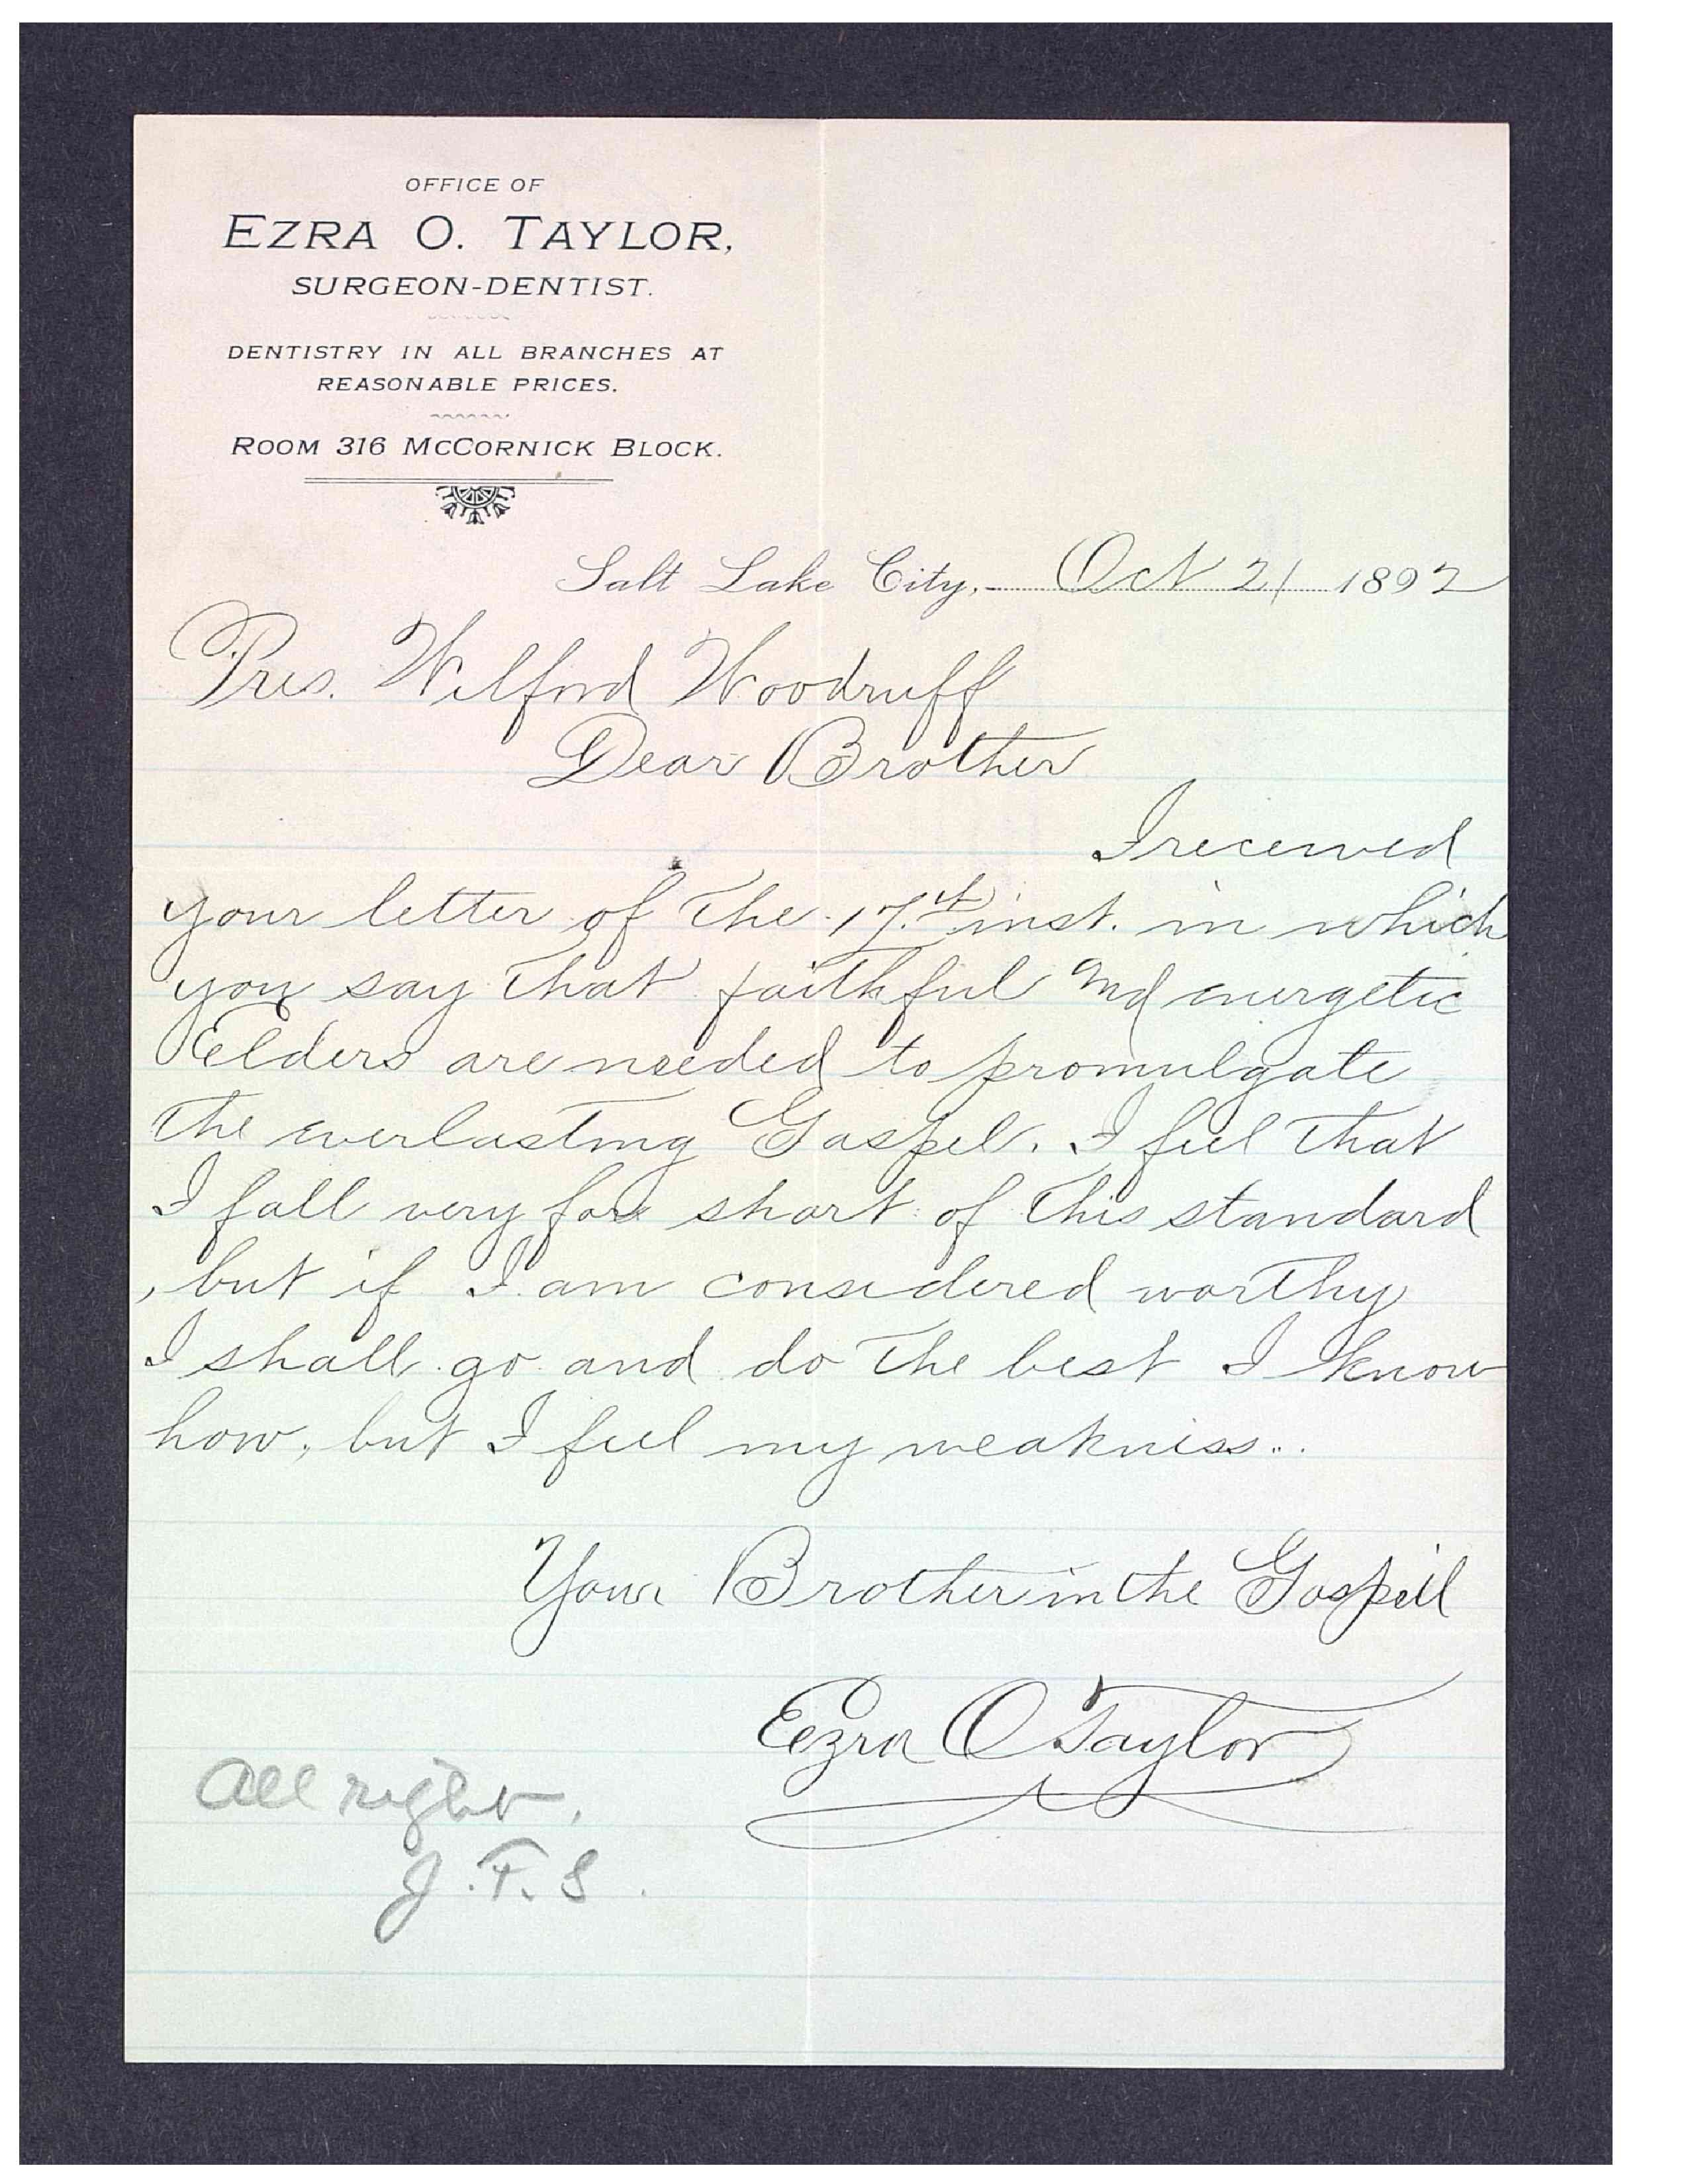 OFFICE OF
EZRA O. TAYLOR,
SURGEON-DENTIST.
DENTISTRY IN ALL BRANCHES AT
REASONABLE PRICES.
ROOM 316 MCCORNICK BLOCK.
Salt Lake City, Oct 21 1892
Pres. Wilford Woodruff
Dear Brother
I received
your letter of the 17.th inst. in which
you say that faithful and energetic
Elders are needed to promulgate
the everlasting Gospel. I feel that
I fall very far short of this standard
, but if I am considered worthy
I shall go and do the best I know
how, but I feel my weakness..
Your Brother in the Gospell
Ezra O Taylor
All right,
J. F. S.